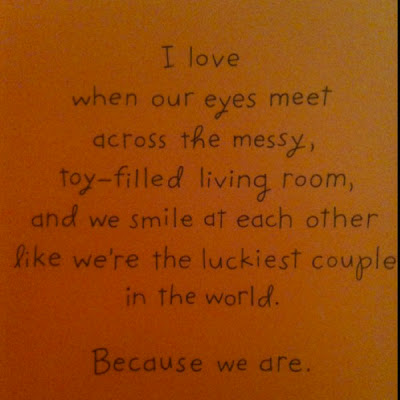 I love
when our eyes meet
across the messy,
toy-filled living room,
and we smile at each other
like we're the luckiest couple
in the world.
Because we are.